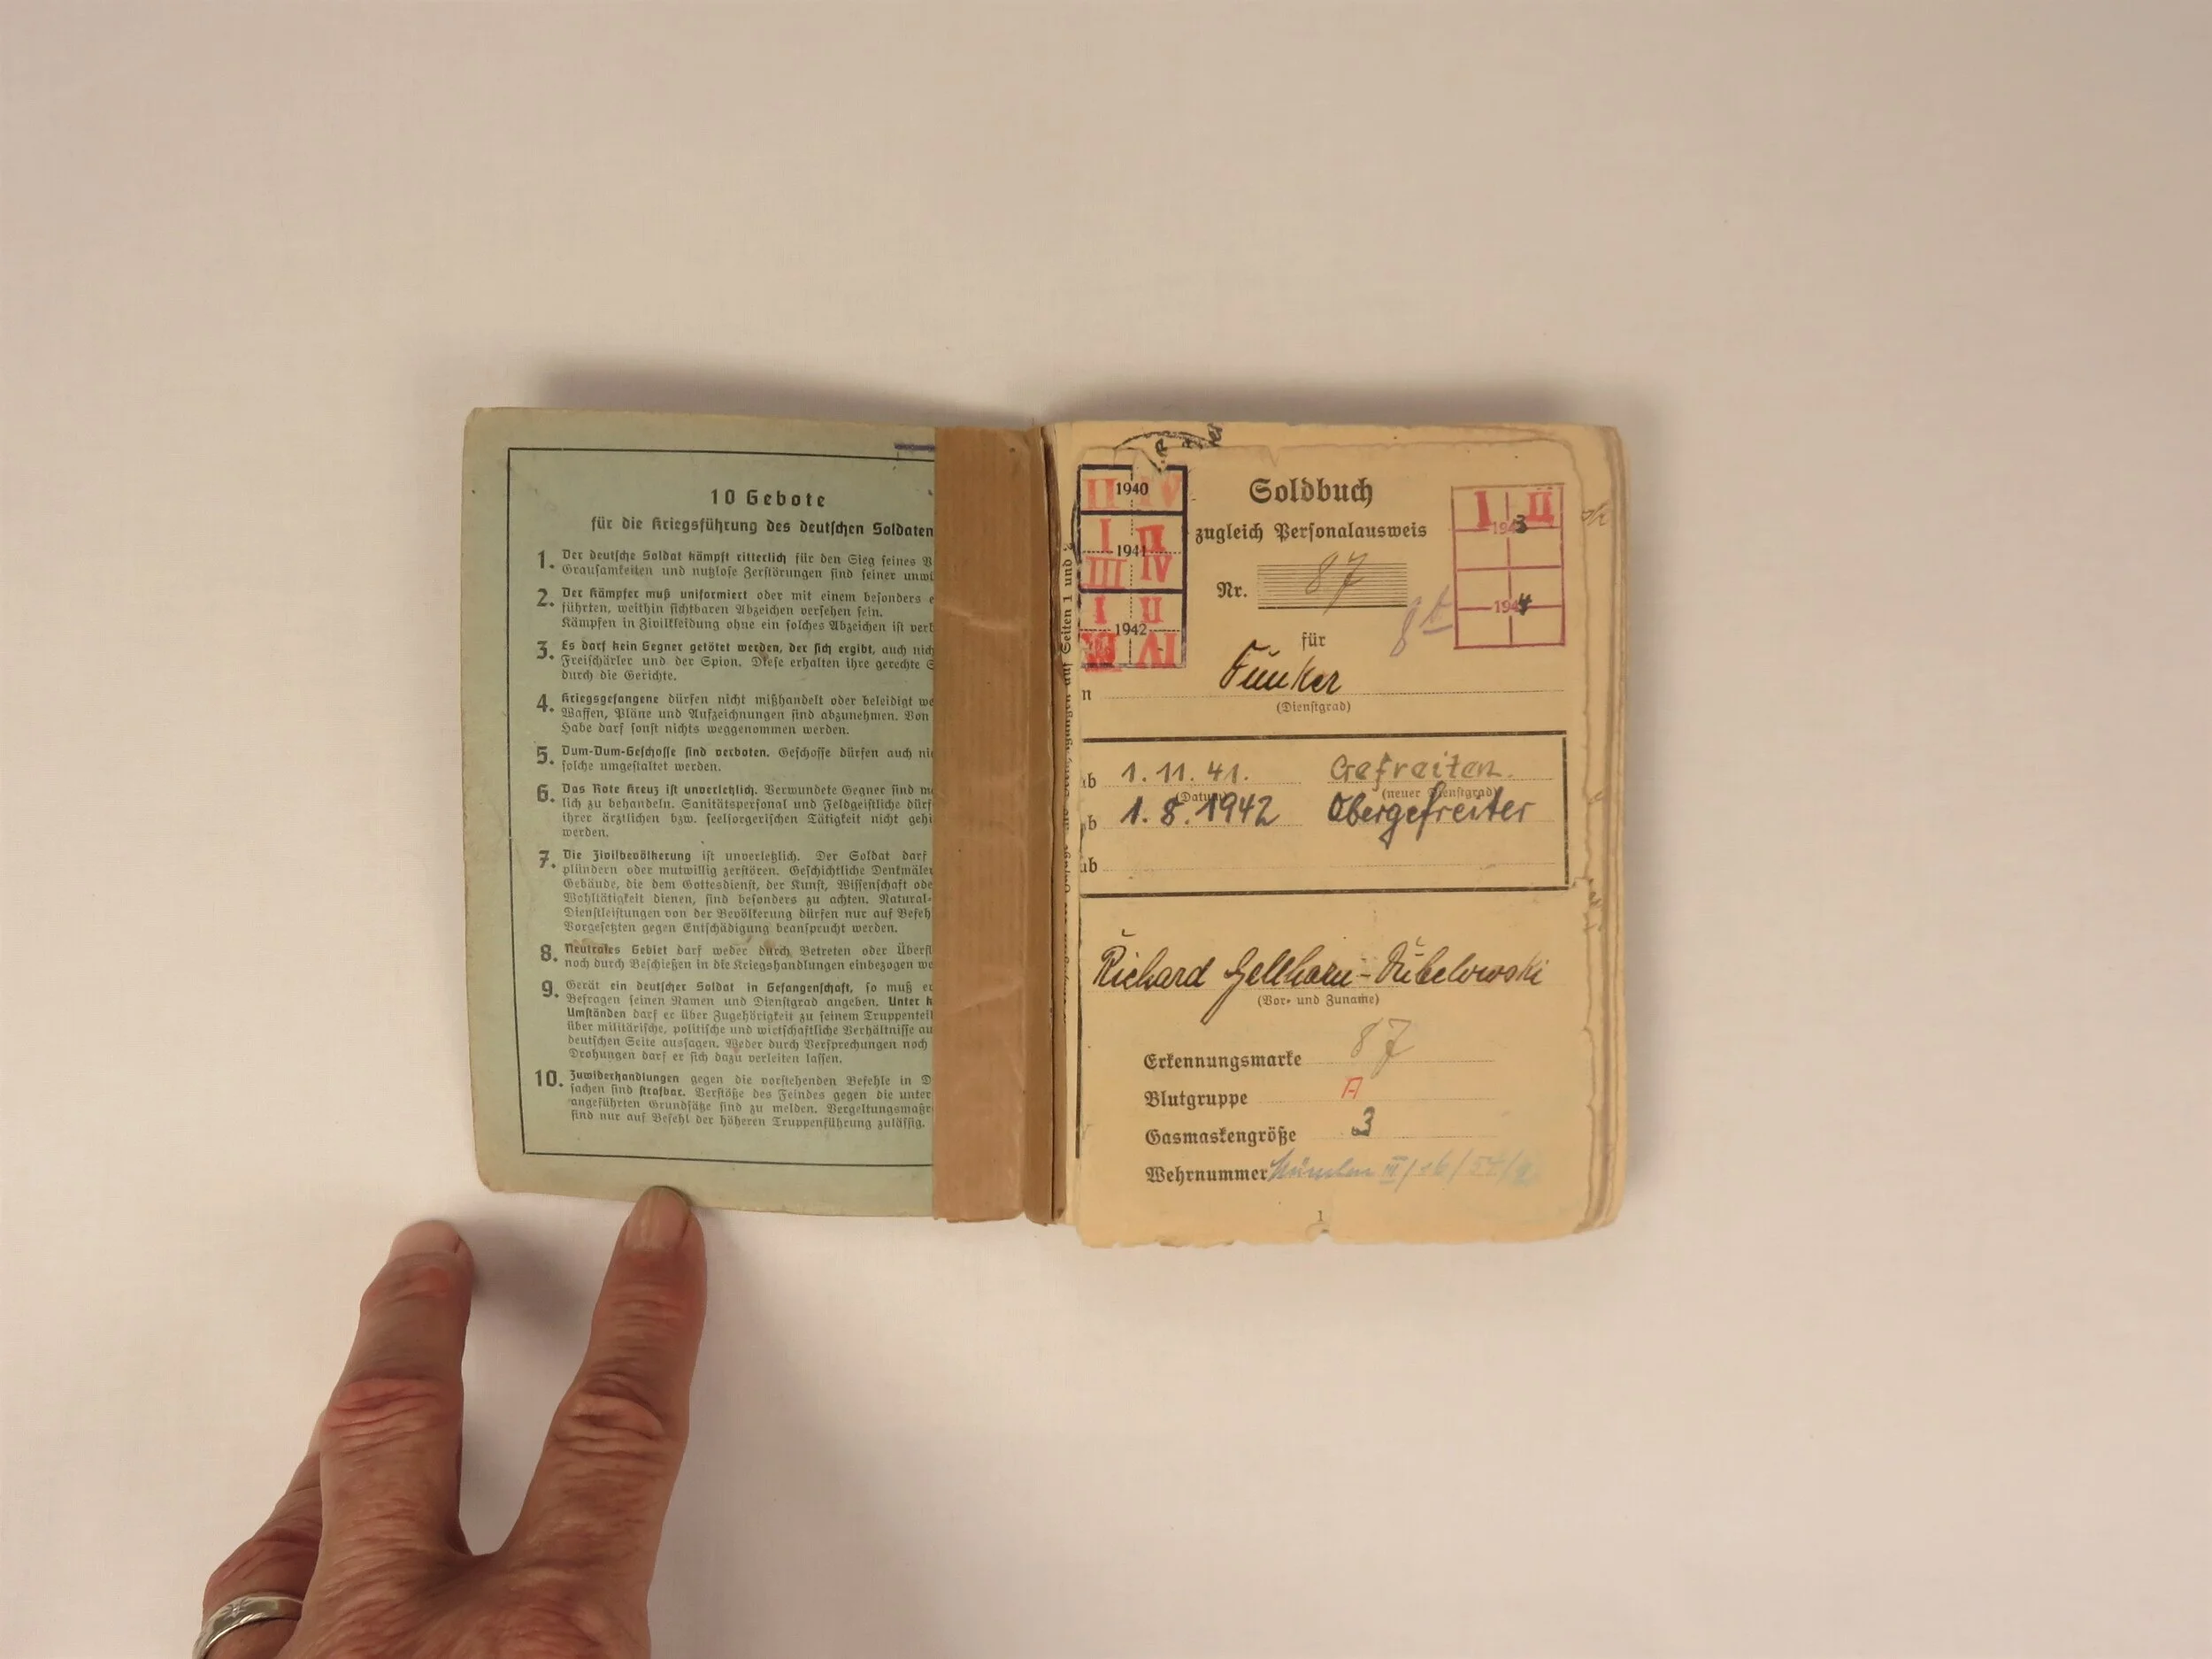 10 Gebote
für die Kriegsführung des deutschen Soldaten
1. Der deutsche Soldat kämpft ritterlich für den Sieg seines V
Grausamkeiten und nutzlose Zerstörungen sind seiner unwü
2. Der Kämpfer muß uniformiert oder mit einem besonders e
führten, weithin sichtbaren Abzeichen versehen sein.
Kämpfen in Zivilkleidung ohne ein solches Abzeichen ist verb
3. Es darf kein Gegner getötet werden, der sich ergibt, auch nich
Freischärler und der Spion. Diese erhalten ihre gerechte S
durch die Gerichte.
4. Kriegsgefangene dürfen nicht mißhandelt oder beleidigt we
Waffen, Pläne und Aufzeichnungen sind abzunehmen. Von
Habe darf sonst nichts weggenommen werden.
5. Dum-Dum-Geschosse sind verboten. Geschosse dürfen auch nic
solche umgestaltet werden.
6. Das Rote Kreuz ist unverletzlich. Verwundete Gegner sind me
lich zu behandeln. Sanitätspersonal und Feldgeistliche dürf
ihrer ärztlichen bzw. seelsorgerischen Tätigkeit nicht gehi
werden.
7. Die Zivilbevölkerung ist unverletzlich. Der Soldat darf
plündern oder mutwillig zerstören. Geschichtliche Denkmäler
Gebäude, die dem Gottesdienst, der Kunst, Wissenschaft ode
Wohltätigkeit dienen, sind besonders zu achten. Natural-
Dienstleistungen von der Bevölkerung dürfen nur auf Befeh
Vorgesetzten gegen Entschädigung beansprucht werden.
8. Neutrales Gebiet darf weder durch Betreten oder Überfl
noch durch Beschießen in die Kriegshandlungen einbezogen we
9. Gerät ein deutscher Soldat in Gefangenschaft, so muß er
Befragen seinen Namen und Dienstgrad angeben. Unter k
Umständen darf er über Zugehörigkeit zu seinem Truppenteil
über militärische, politische und wirtschaftliche Verhältnisse au
deutschen Seite aussagen. Weder durch Versprechungen noch
Drohungen darf er sich dazu verleiten lassen.
10. Zuwiderhandlungen gegen die vorstehenden Befehle in D
sachen sind strafbar. Verstöße des Feindes gegen die unter
angeführten Grundsätze sind zu melden. Vergeltungsmaßr
sind nur auf Befehl der höheren Truppenführung zulässig.
II 1940 IV
I II
1941
III IV
I II
1942
III IV
Soldbuch
zugleich Personalausweis
Nr. 87
I II
1943
1944
für
Funker
(Dienstgrad)
ab 1.11.41. Gefreiten.
(Datum) (neuer Dienstgrad)
ab 1.8.1942 Obergefreiter
ab
Richard Gellhorn-Dübelowski
(Vor- und Zuname)
Erkennungsmarke 87
Blutgruppe A
Gasmaskengröße 3
Wehrnummer München III
1
auf Seiten 1 und 2